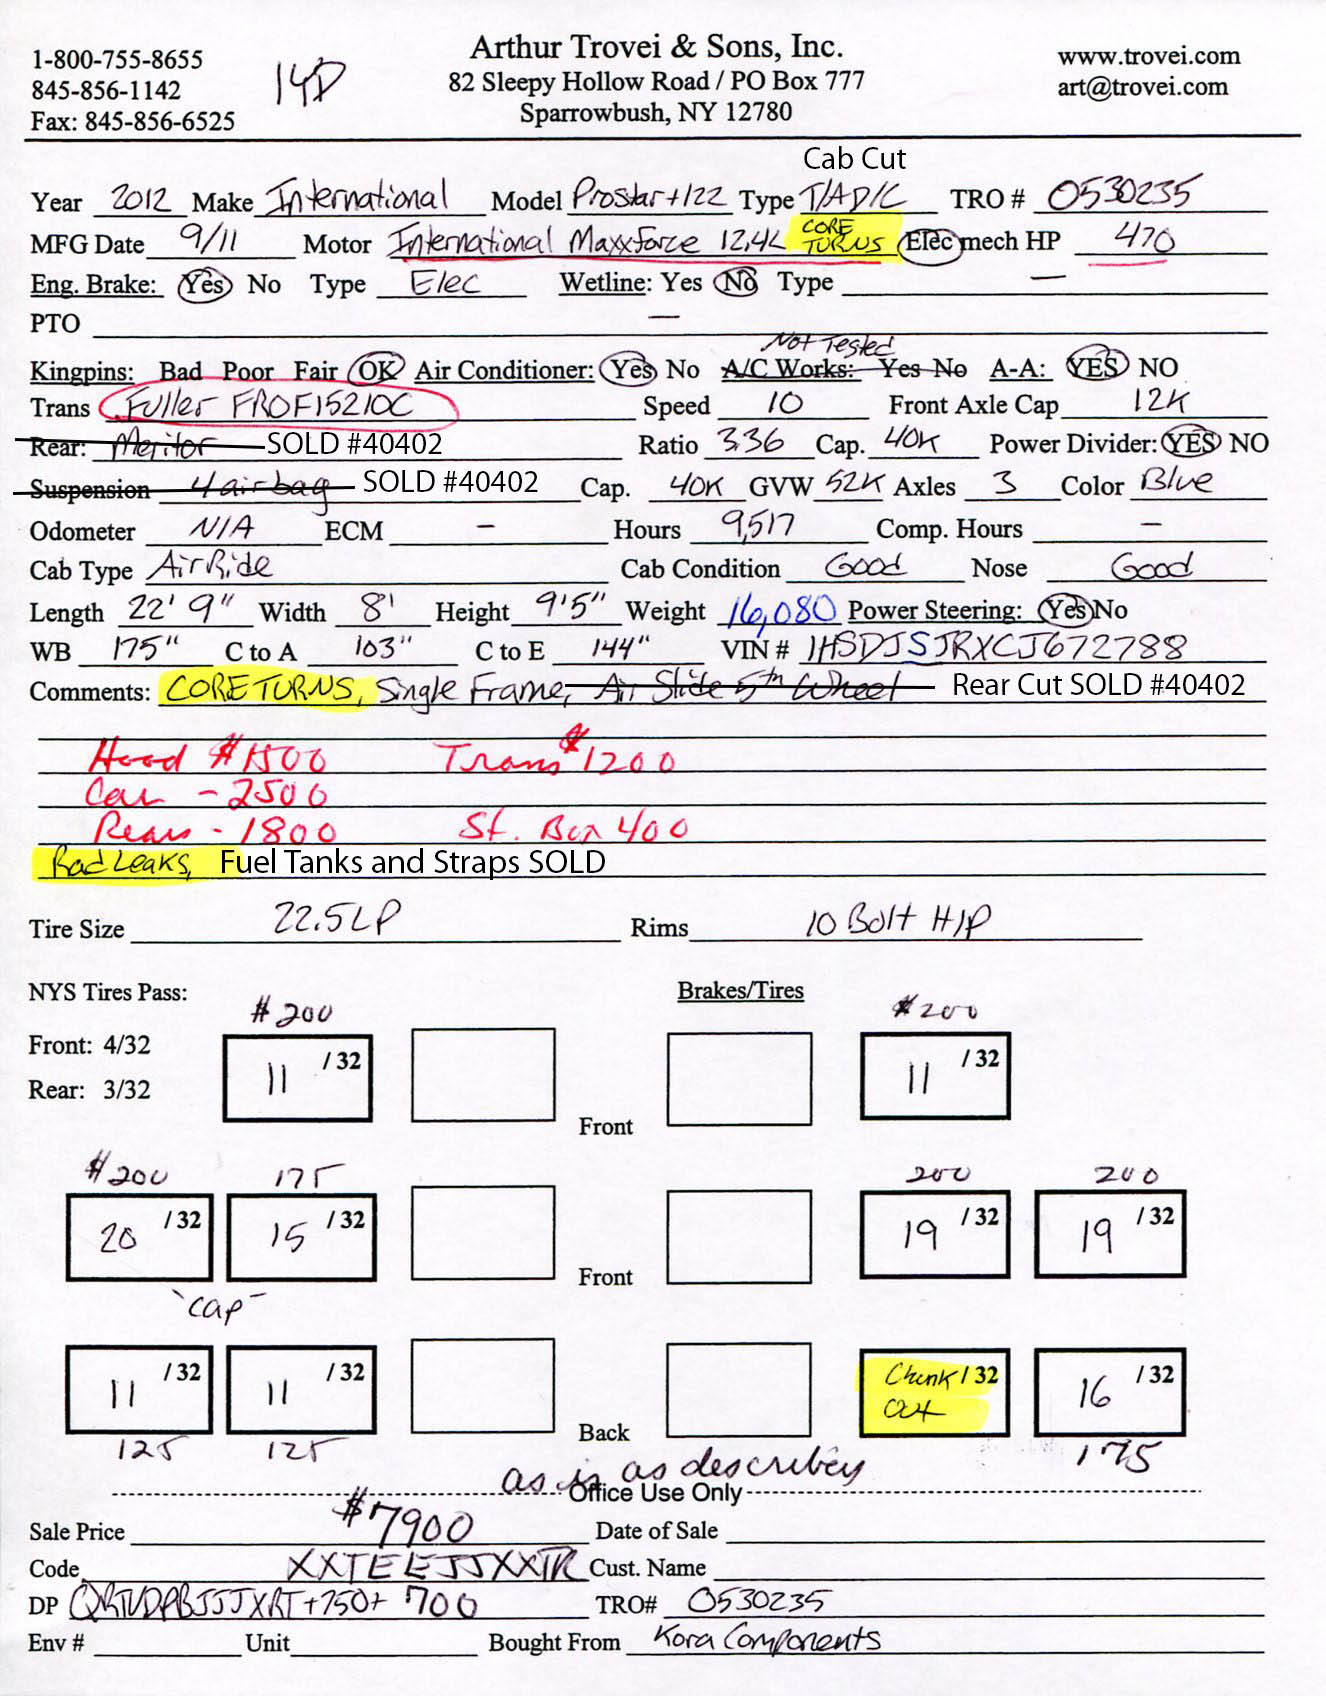 1-800-755-8655
845-856-1142
Fax: 845-856-6525
14D
Arthur Trovei & Sons, Inc.
82 Sleepy Hollow Road / PO Box 777
Sparrowbush, NY 12780
www.trovei.com
art@trovei.com
Cab Cut
Year 2012 Make International Model Prostar+122 Type T/AD/C TRO # 0530235
MFG Date 9/11 Motor International Maxxforce 12.4L CORE TURNS Elec mech HP 470
Eng. Brake: Yes No Type Elec Wetline: Yes No Type —
PTO —
Not Tested
Kingpins: Bad Poor Fair OK Air Conditioner: Yes No A/C Works: Yes No A-A: YES NO
Trans Fuller FROF15210C Speed 10 Front Axle Cap 12K
Rear: Meritor SOLD #40402 Ratio 3.36 Cap. 40K Power Divider: YES NO
Suspension 4 airbag SOLD #40402 Cap. 40K GVW 52K Axles 3 Color Blue
Odometer N/A ECM - Hours 9,517 Comp. Hours —
Cab Type AirRide Cab Condition Good Nose Good
Length 22' 9" Width 8' Height 9'5" Weight 16,080 Power Steering: Yes No
WB 175" C to A 103" C to E 144" VIN # 1HSDJSJRXCJ672788
Comments: CORE TURNS, Single Frame, Air Slide 5th Wheel Rear Cut SOLD #40402
Hood $1500 Trans $1200
- 2500
Rears - 1800 St. Box 400
Rad Leaks, Fuel Tanks and Straps SOLD
Tire Size 22.5LP Rims 10 Bolt H/P
NYS Tires Pass: Brakes/Tires
$200 $200
Front: 4/32 11 /32 11 /32
Rear: 3/32
Front
$200 175 200 200
20 /32 15 /32 19 /32 19 /32
Front
"Cap"
11 /32 11 /32 Chunk out /32 16 /32
Back
125 125 175
as is as
Office Use Only
Sale Price $7900 Date of Sale
Code XXTEEJJXXTR Cust. Name
DP +750+ 700 TRO# 0530235
Env # Unit Bought From Kora Components